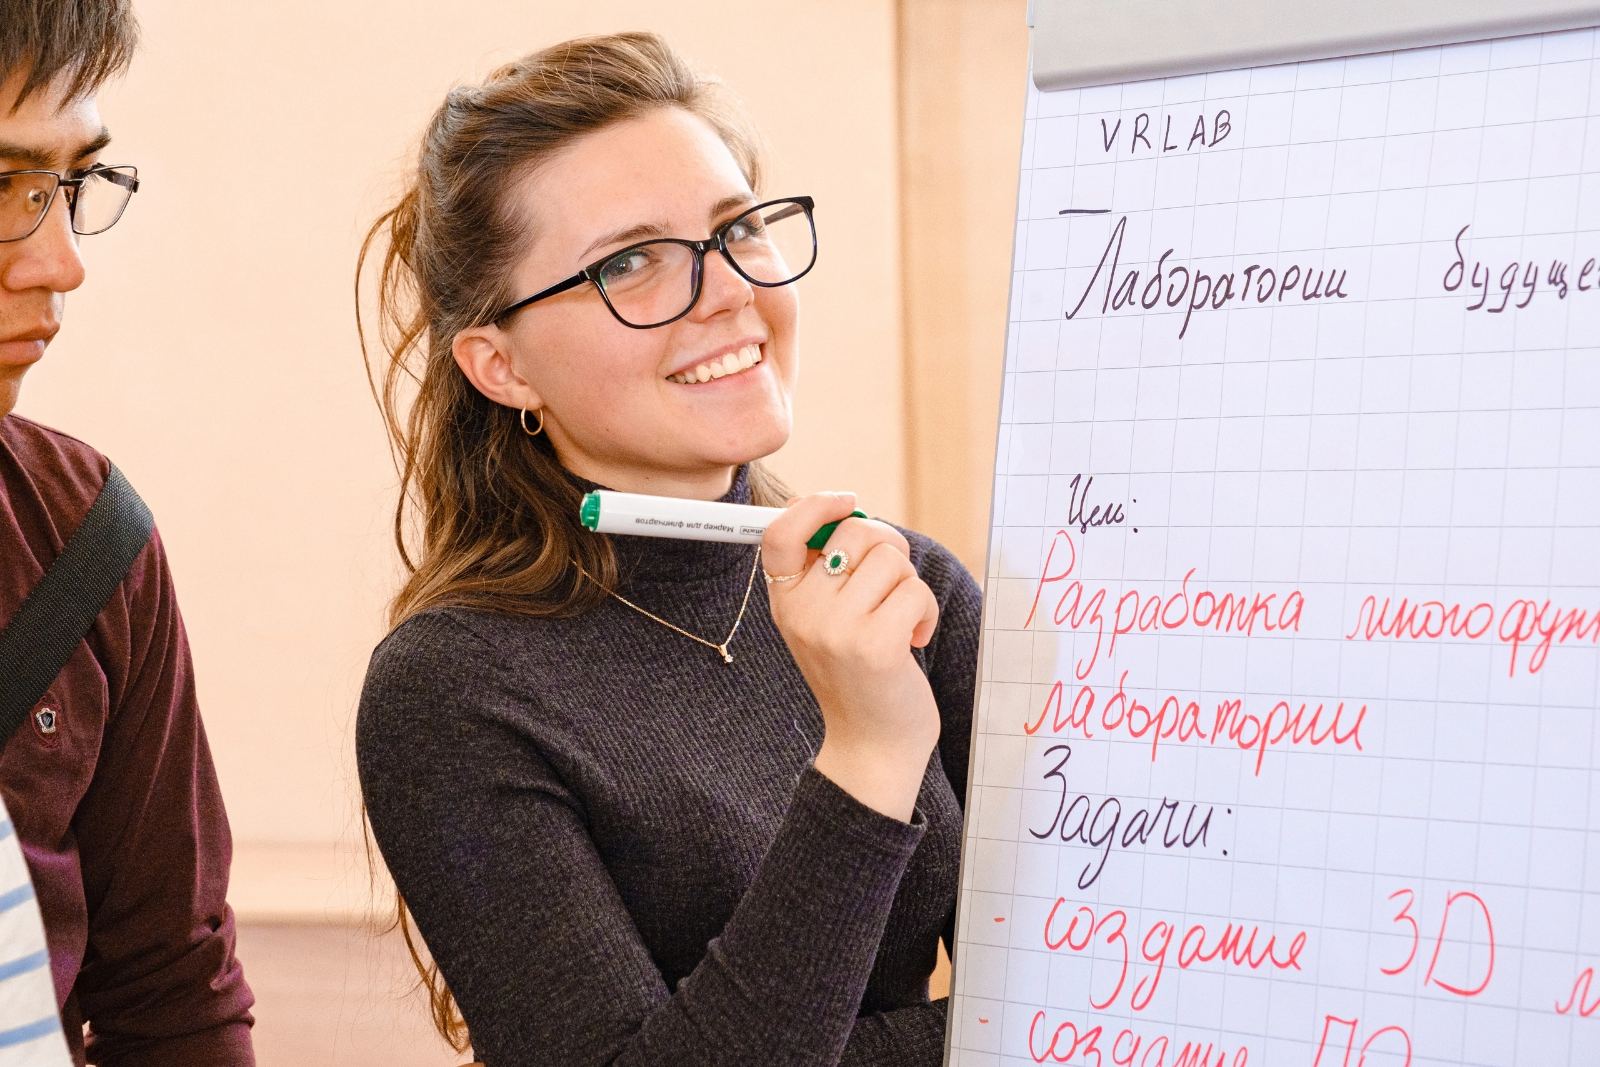 VRLAB
Лаборатории будуще
Цель:
Разработка многофун
лаборатории
Задачи:
- создание 3D
- создание ПО
Маркер для флипчартов
attache